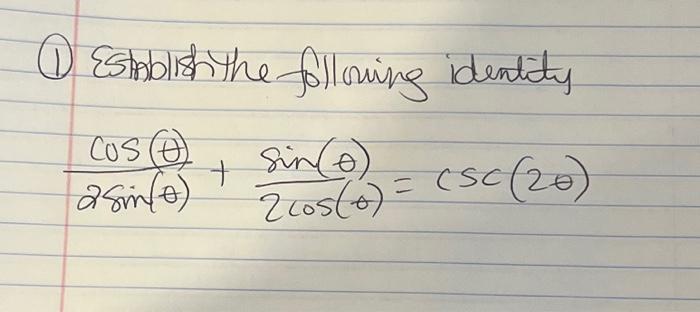 ① Establish the following identity
cos(θ)/2sin(θ) + sin(θ)/2cos(θ) = csc(2θ)